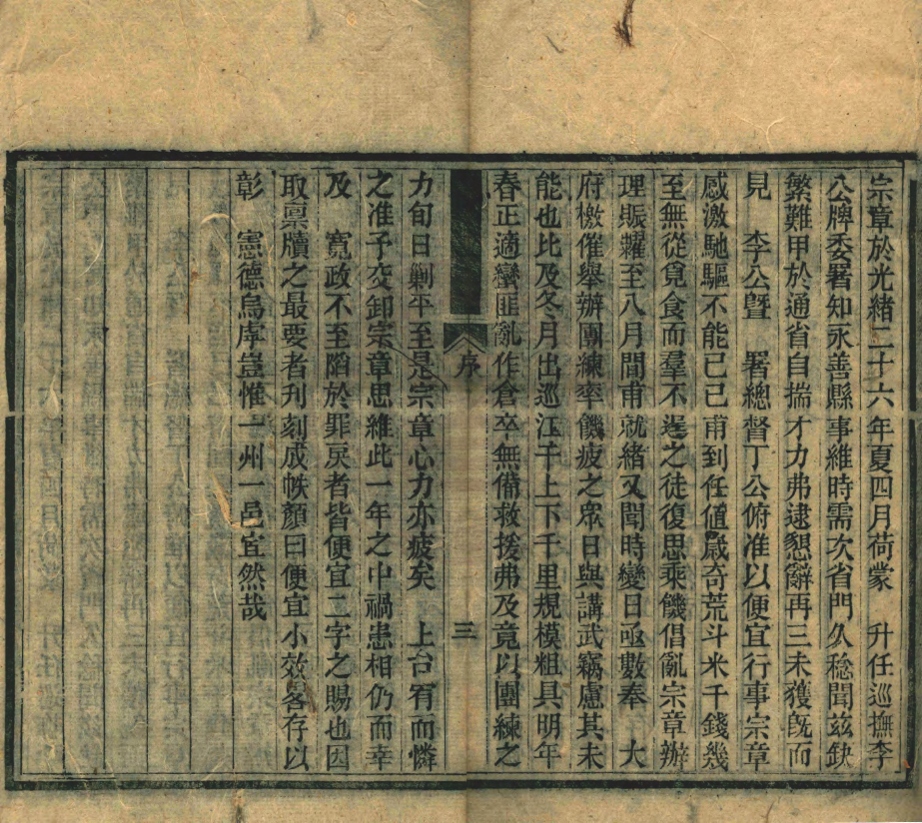 宗章於光緒二十六年夏四月荷蒙　升任巡撫李
公牌委署知永善縣事維時需次省門久稔聞茲缺
繁難甲於通省自揣才力弗逮懇辭再三未獲旣而
見　李公曁　署總督丁公俯准以便宜行事宗章
感激馳驅不能已已甫到任値歲奇荒斗米千錢幾
至無從覓食而羣不逞之徒復思乘饑倡亂宗章辦
理賑糶至八月間甫就緒又聞時變日亟數奉　大
府檄催舉辦團練率饑疲之眾日與講武竊慮其未
能也比及冬月出巡江干上下千里規模粗具明年
春正適蠻匪亂作倉卒無備救援弗及竟以團練之
序
三
力旬日剿平至是宗章心力亦疲矣　上台宥而憐
之准予交卸宗章思維此一年之中禍患相仍而幸
及　寬政不至陷於罪戾者皆便宜二字之賜也因
取稟牘之最要者刋刻成帙顏曰便宜小效畧存以
彰　憲德烏虖豈惟一州一邑宜然哉